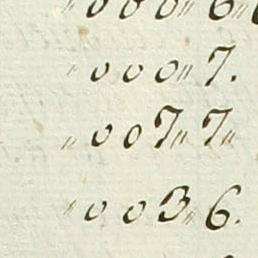 " 0 0 0 " 6 "
" 0 0 0 " 7.
" 0 0 7 " 7 "
" 0 0 3 " 6.